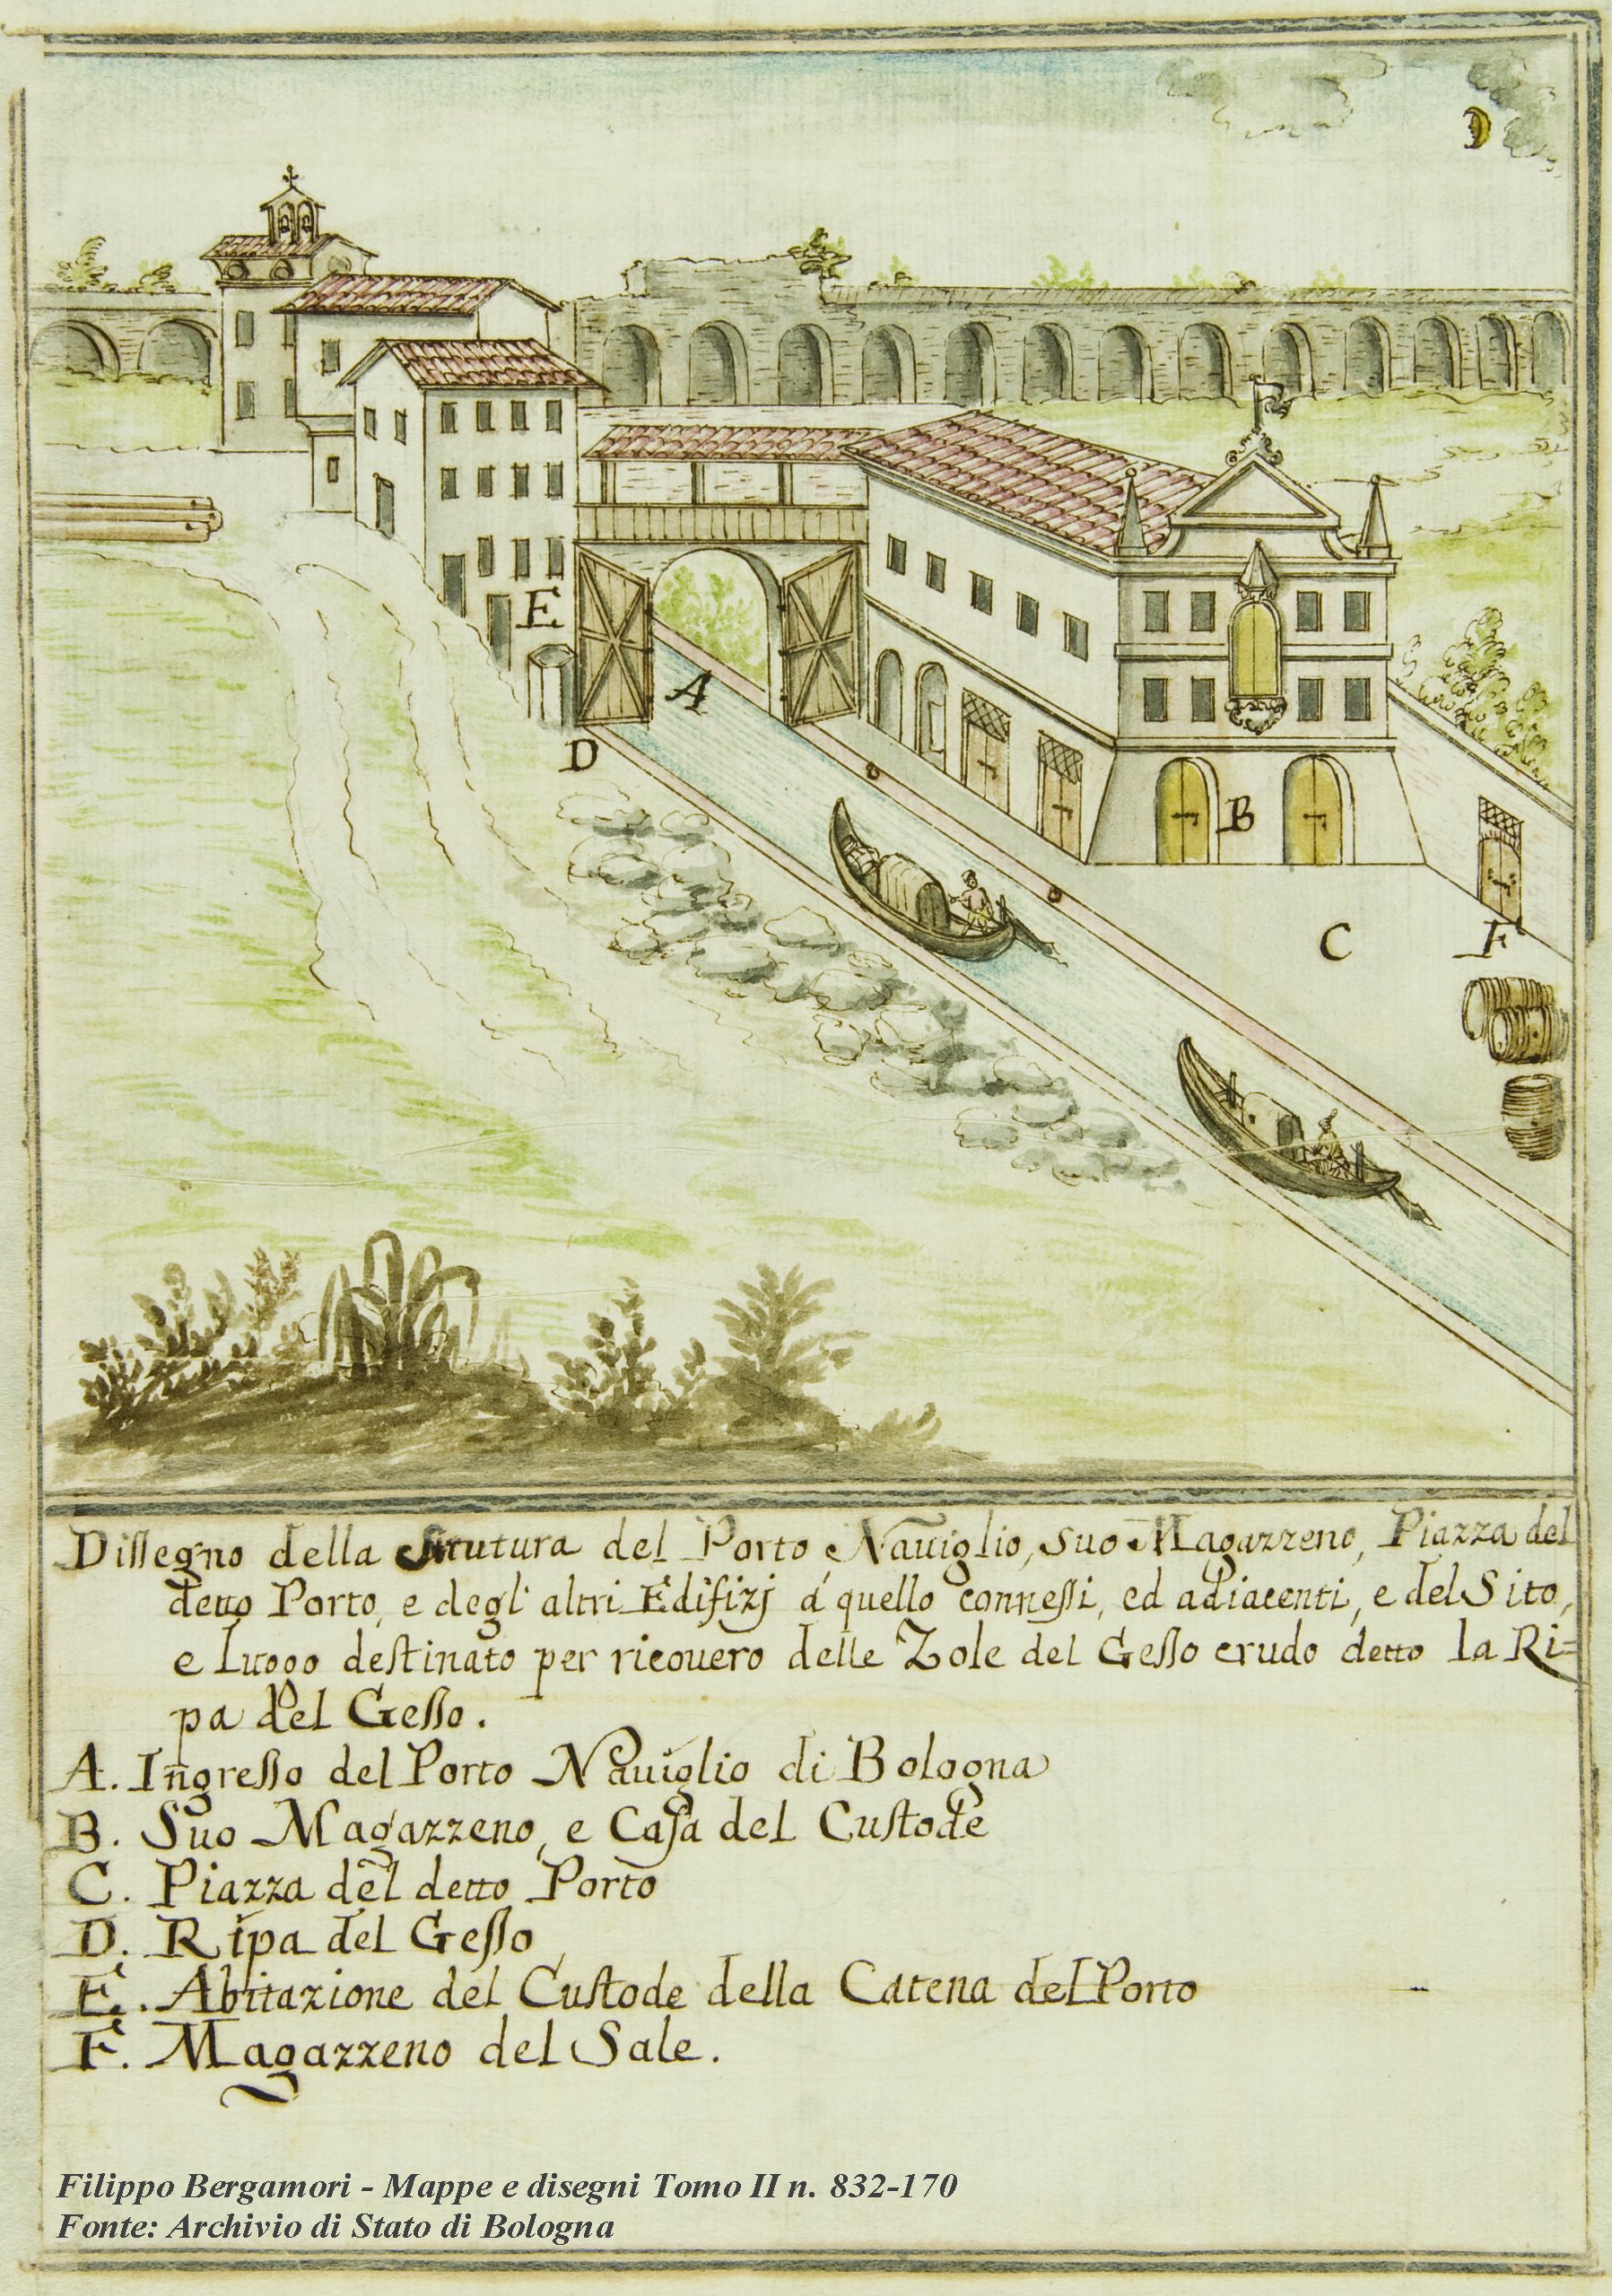 E
A
D
B
C
F
Dissegno della Strutura del Porto Nauiglio, suo Magazzeno, Piazza del
detto Porto, e degl' altri Edifizj à quello connessi, ed adiacenti, e del Sito,
e Luogo destinato per ricouero delle Zole del Gesso crudo detto la Ri=
pa del Gesso.
A. Ingresso del Porto Nauiglio di Bologna
B. Suo Magazzeno, e Casa del Custode
C. Piazza del detto Porto
D. Ripa del Gesso
E. Abitazione del Custode della Catena del Porto
F. Magazzeno del Sale.
Filippo Bergamori - Mappe e disegni Tomo II n. 832-170
Fonte: Archivio di Stato di Bologna